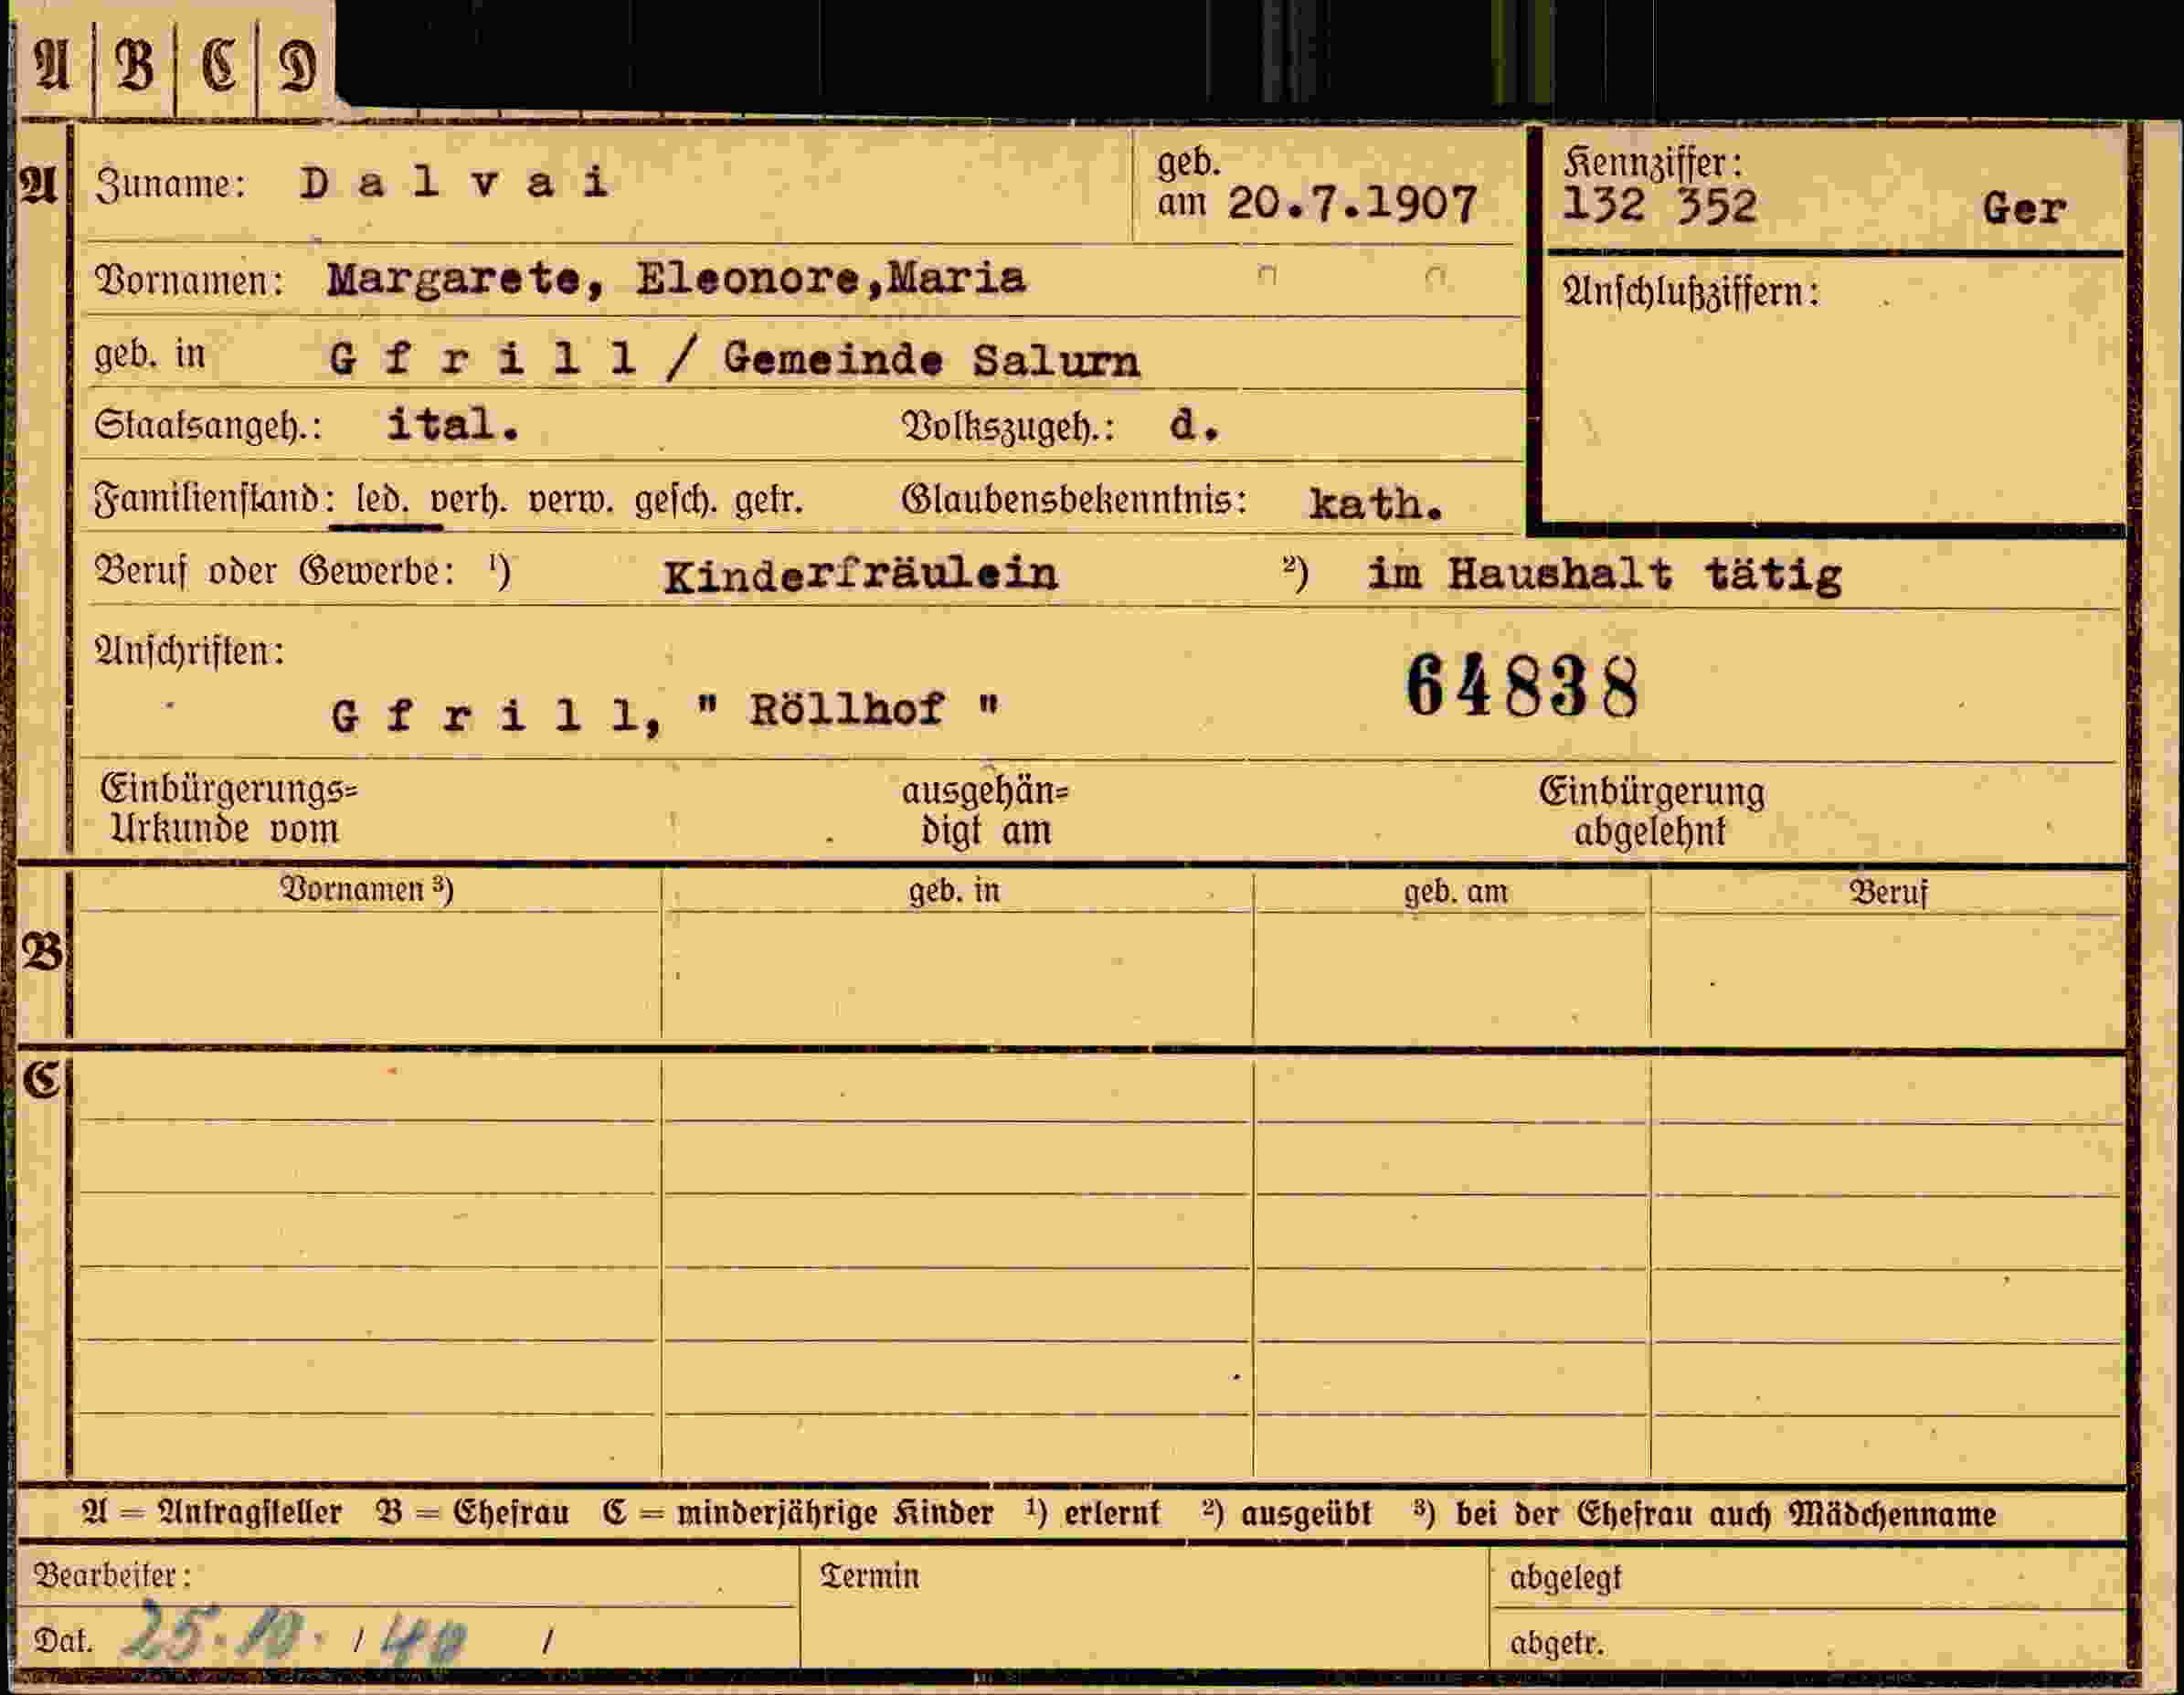 A B C D
A Zuname: Dalvai geb. am 20.7.1907 Kennziffer: 132 352 Ger
Vornamen: Margarete, Eleonore,Maria Anschlußziffern:
geb. in Gfrill / Gemeinde Salurn
Staatsangeh.: ital. Volkszugeh.: d.
Familienstand: led. verh. verw. gesch. getr. Glaubensbekenntnis: kath.
Beruf oder Gewerbe: ¹) Kinderfräulein ²) im Haushalt tätig
Anschriften:
64838
Gfrill, " Röllhof "
Einbürgerungs= Urkunde vom ausgehän= digt am Einbürgerung abgelehnt
Vornamen ³) geb. in geb. am Beruf
B
C
A = Antragsteller B = Ehefrau C = minderjährige Kinder ¹) erlernt ²) ausgeübt ³) bei der Ehefrau auch Mädchenname
Bearbeiter: Termin abgelegt
Dat. 25.10. / 40 / abgetr.